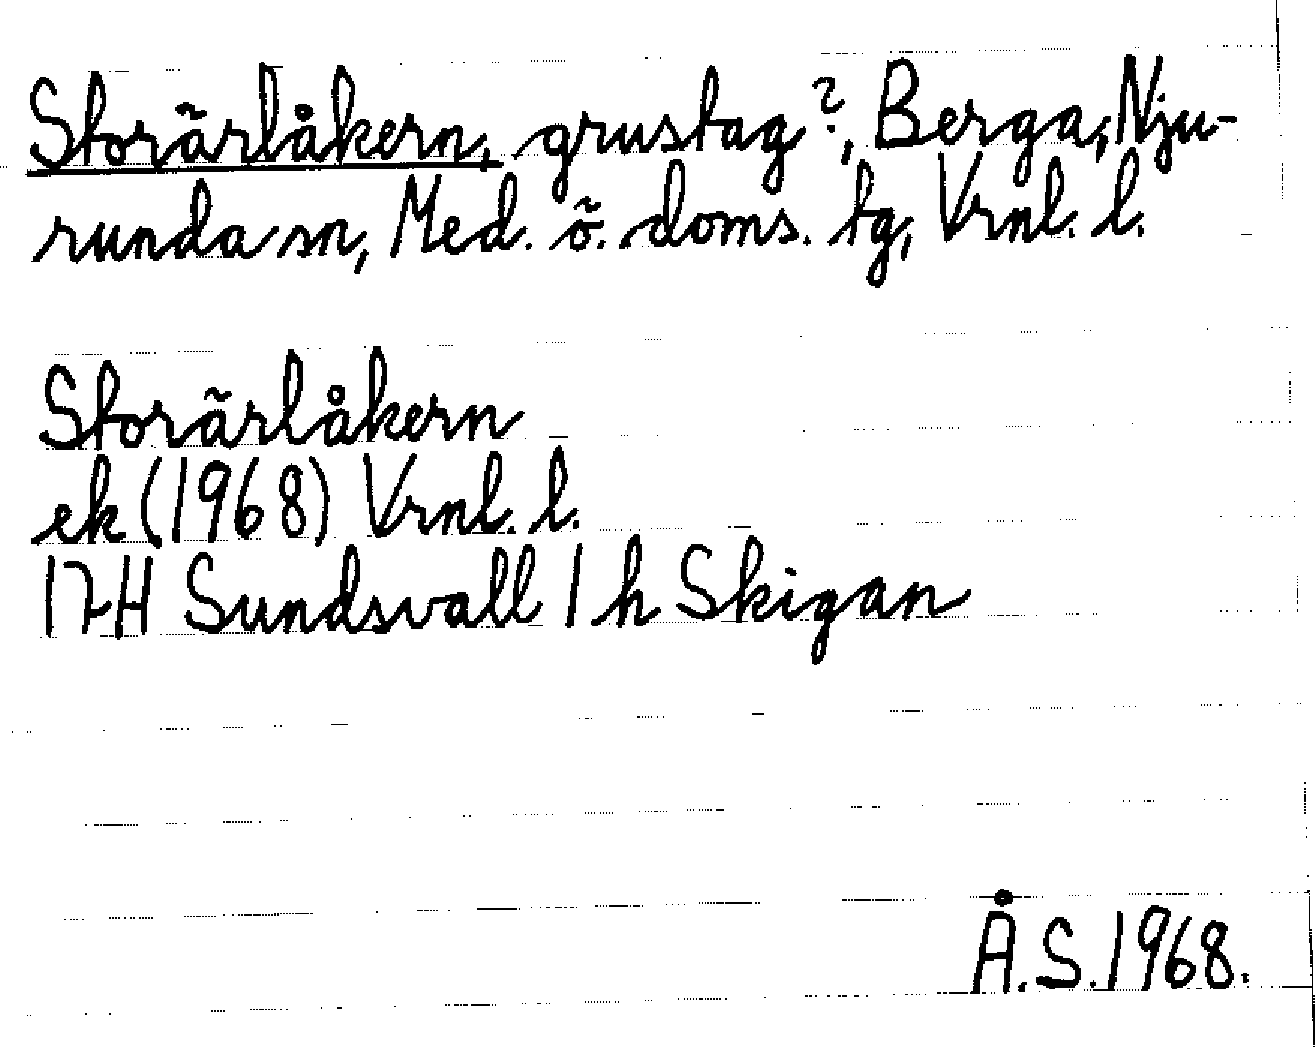 Storärlåkern, grustag?, Berga, Nju-
runda sn, Med. ö. doms. tg, Vrnl. l.
Storärlåkern
ek (1968) Vrnl. l.
17H Sundsvall 1 h Skigan
Å.S. 1968.